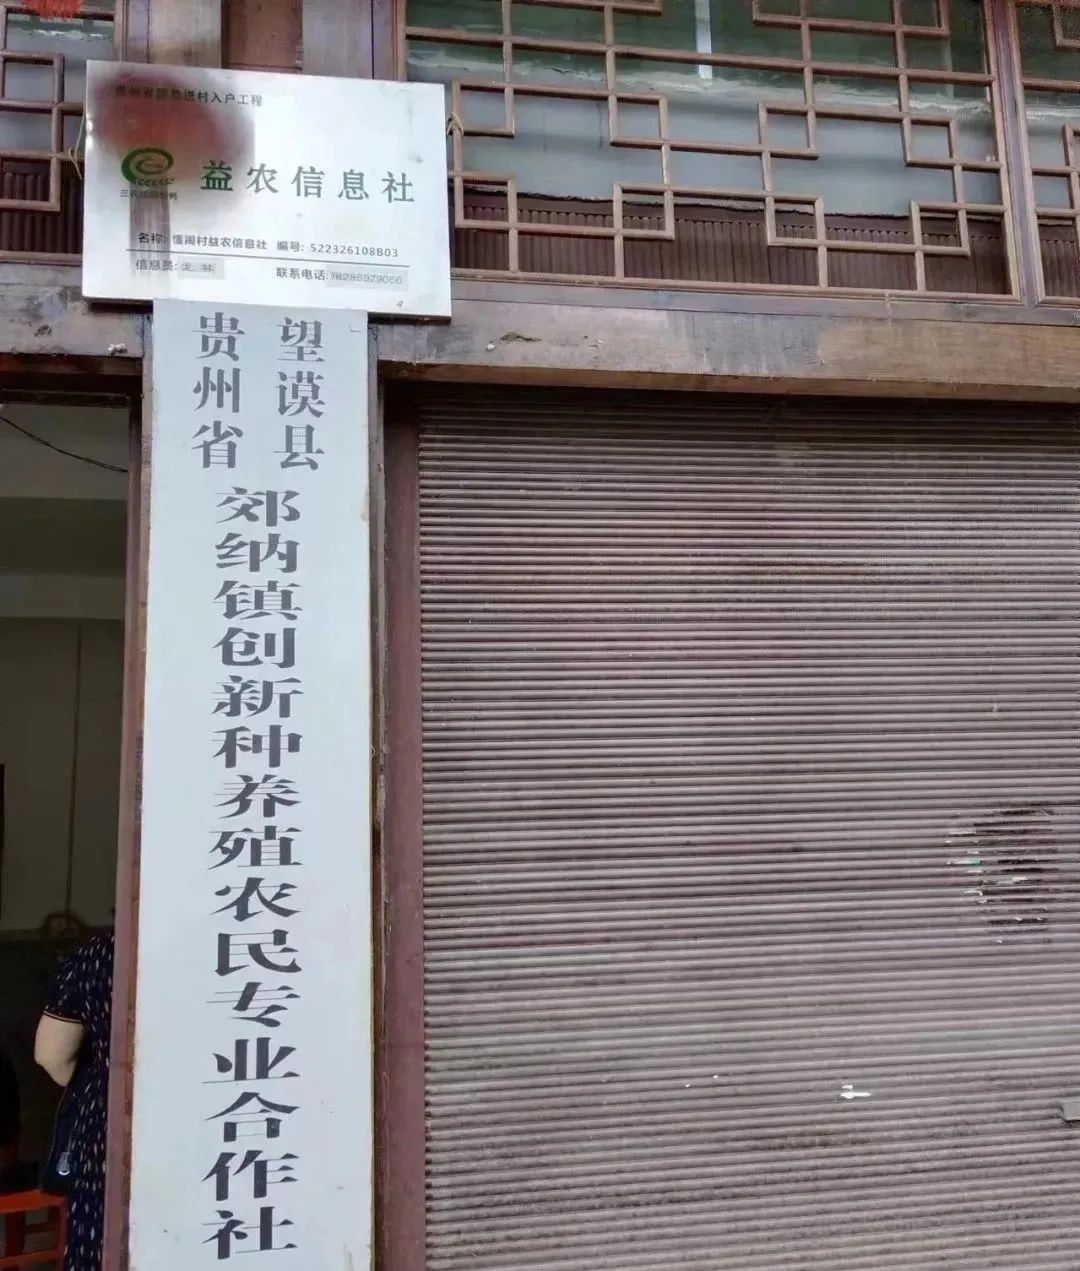 贵州省信息进村入户工程
益农信息社
名称: 懂闹村益农信息社 编号: 522326108B03
信息员:
联系电话: 18286979066
贵州省
望谟县
郊纳镇创新种养殖农民专业合作社